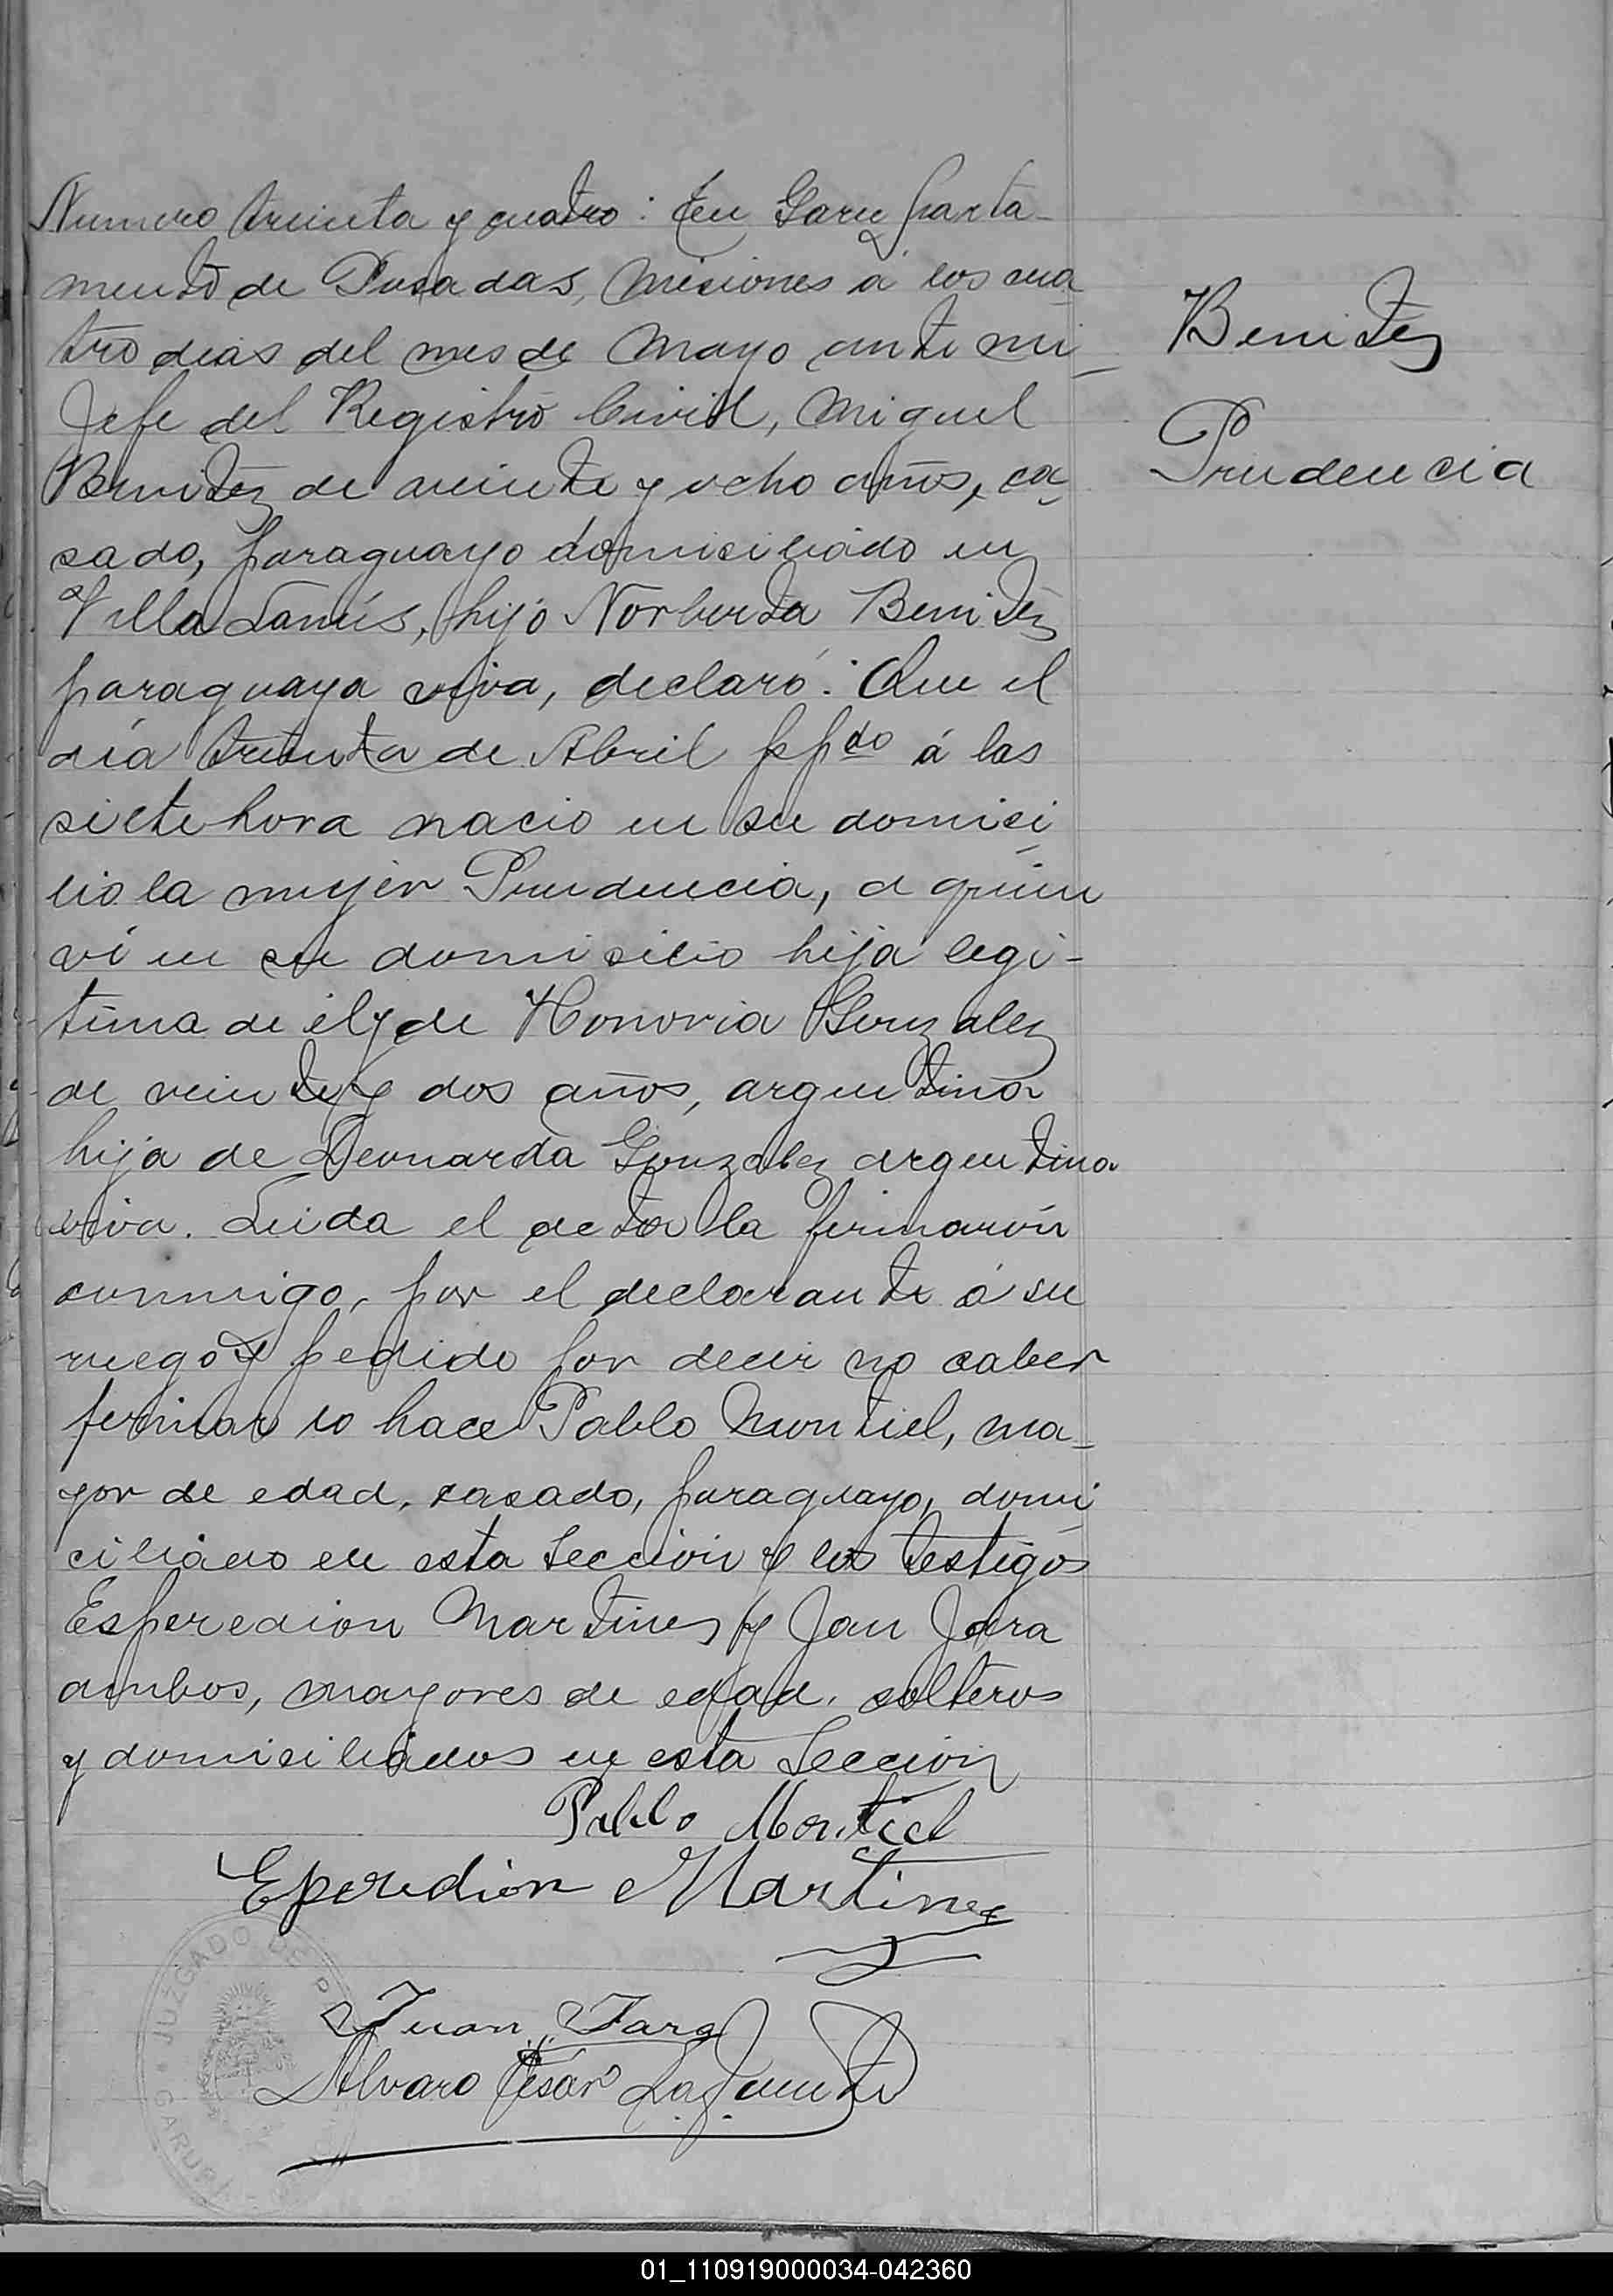 Numero treinta y cuatro: En Garu parta-
mento de Posadas, Misiones á los cua
tro dias del mes de Mayo ante mi
Jefe del Registro Civil, Miguel
Benitez de veinte y ocho años, ca
sado, paraguayo domiciliado en
Villa Lanús, hijo Norberta Benitez
paraguaya viva, declaró: Que el
día treinta de Abril ppdo á las
siete hora nacio en su domici
lio la mujer Prudencia, a quien
ví en su domicilio hija legi-
tima de él y de Honoria Gonzalez
de veinte y dos años, argentina
hija de Leonarda Gonzalez argentina
viva. Leida el acta la firmarón
conmigo, por el declarante á su
ruego y pedido por decir no saber
firmar lo hace Pablo Montiel, ma-
yor de edad, casado, paraguayo, domi
ciliado en esta Sección y los testigos
Esperedion Martines y Jan Jara
ambos, mayores de edad, solteros
y domiciliados en esta Sección
Pablo Montiel
Eperedion Martinez
Juan Jara
Alvaro César Lafuente
Benitez
Prudencia
JUZGADO DE P
GARUPA
01_110919000034-042360